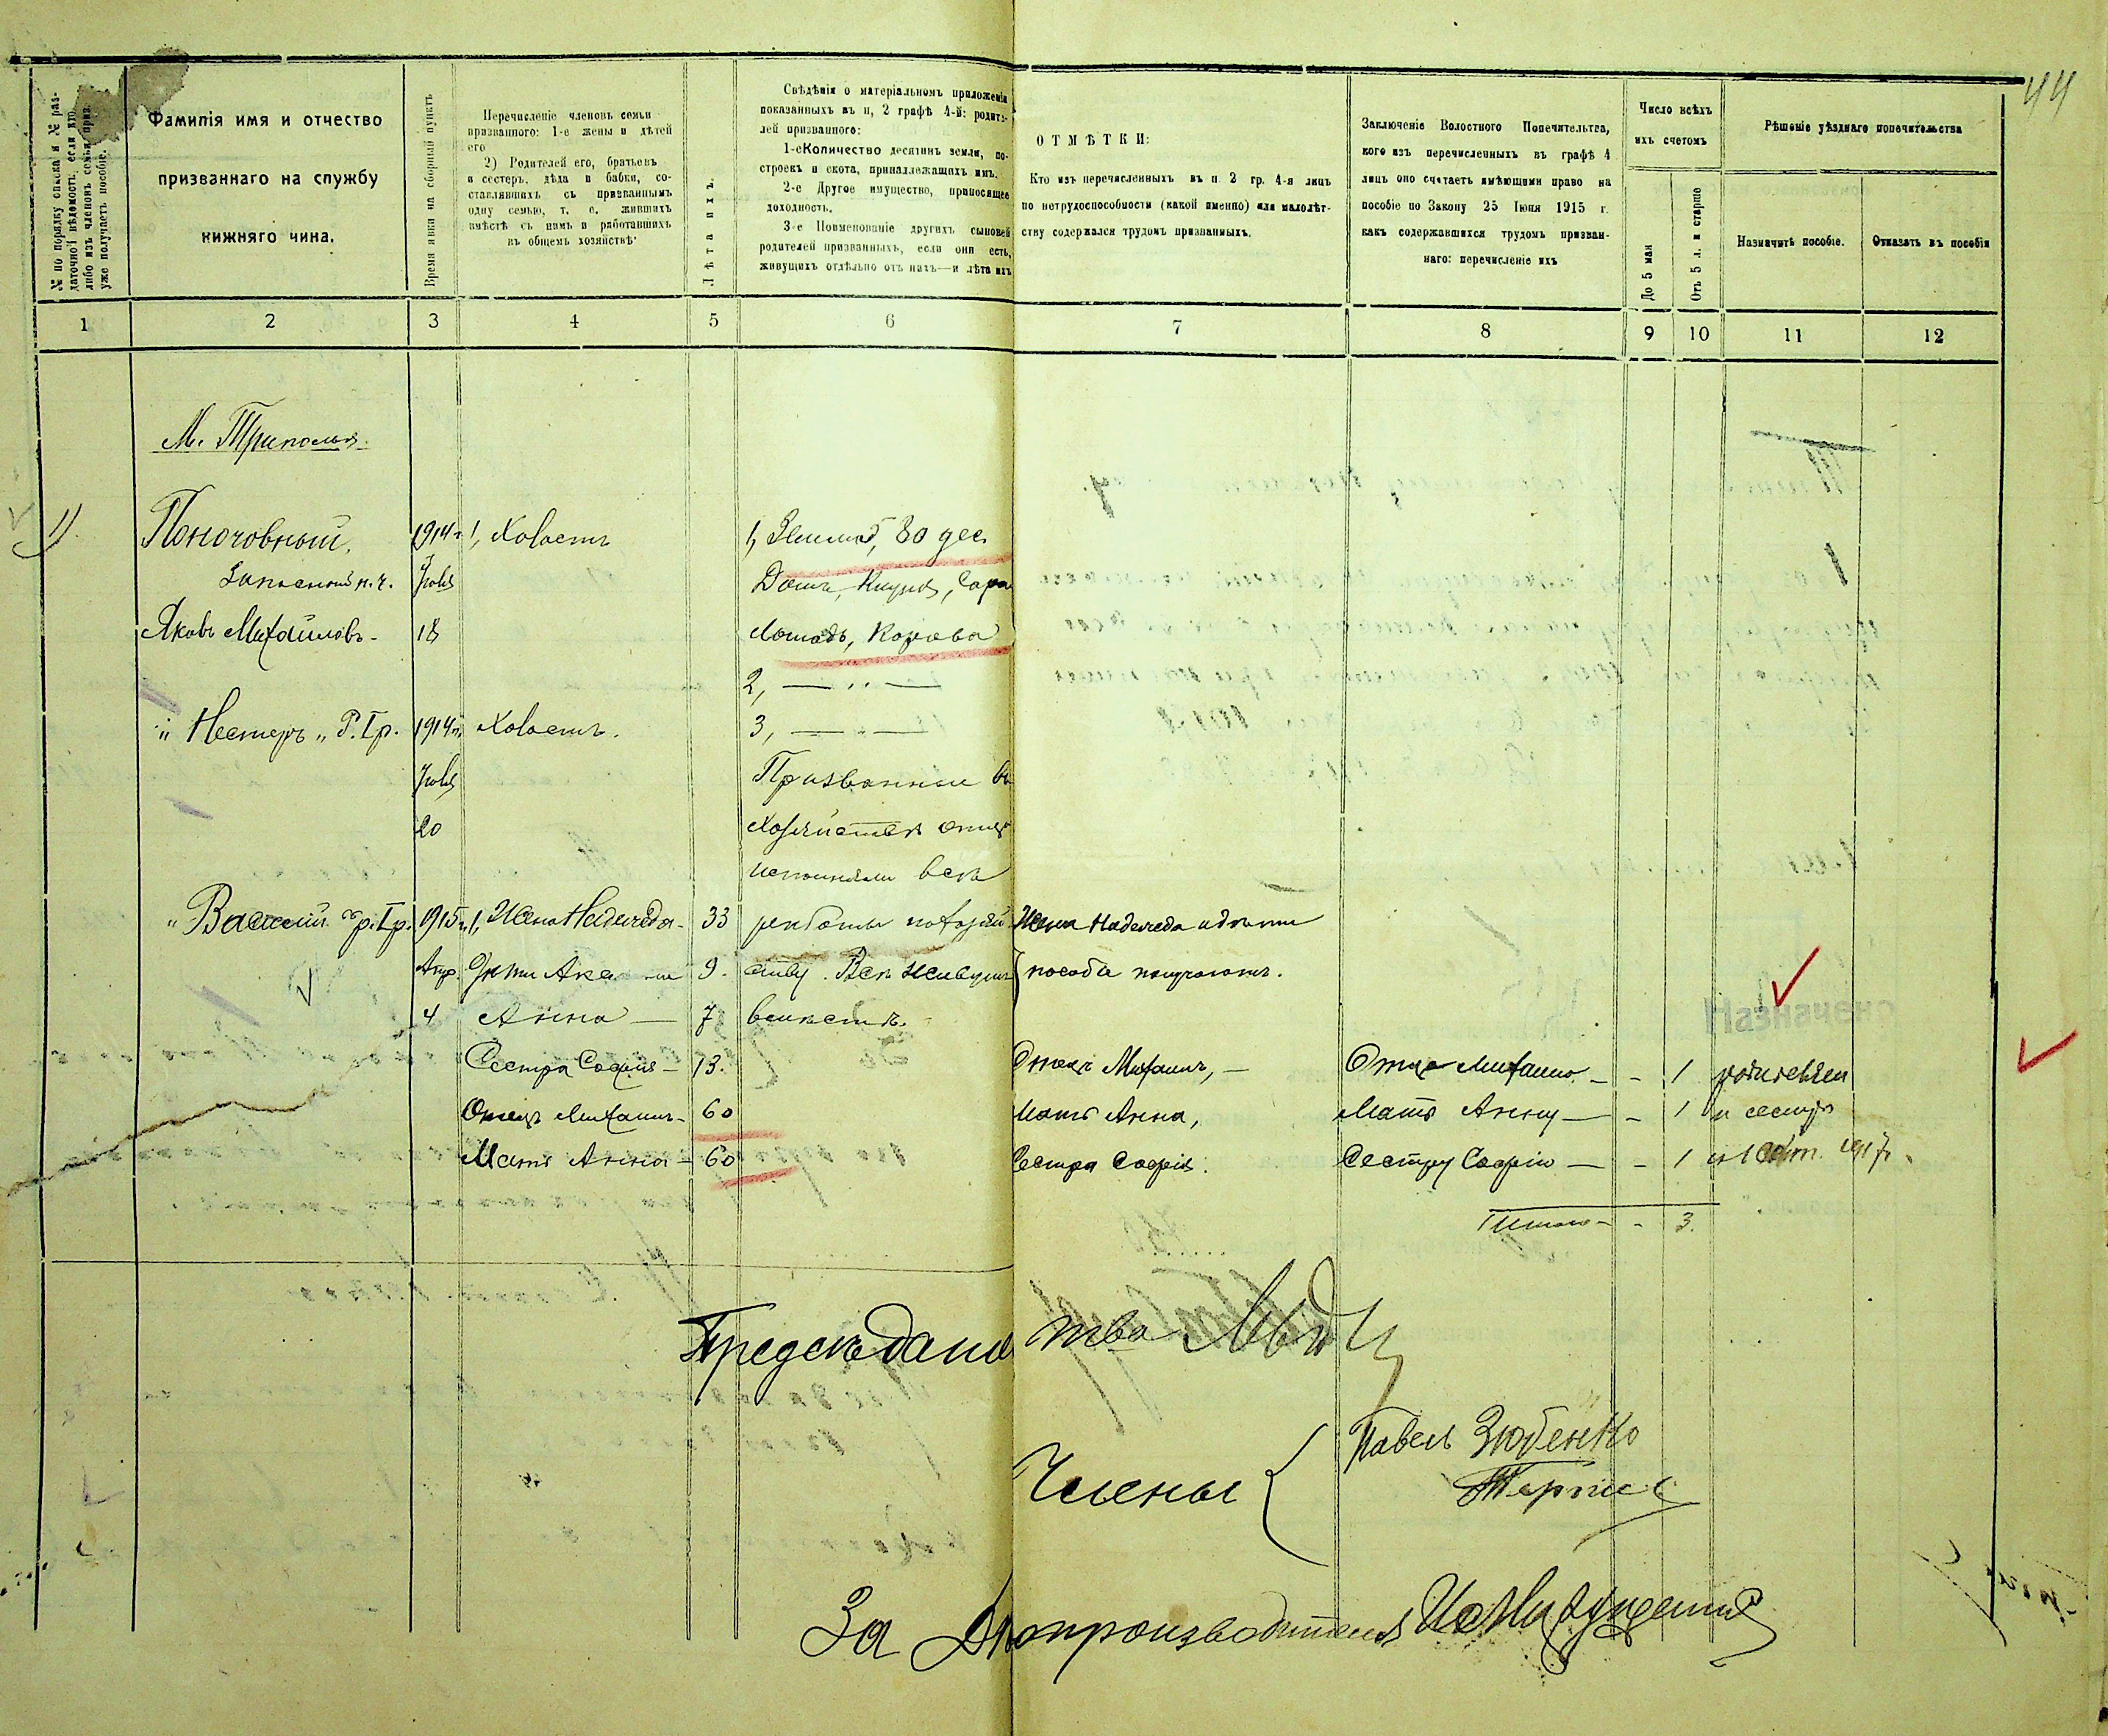 44
№ по порядку списка и № раз-
даточной вѣдомость, если кто
либо изъ членовъ семьи приз.
уже получаетъ пособіе.
Фамилія имя и отчество
призваннаго на службу
нижняго чина.
Время явки на сборный пунктъ
Перечисленіе членовъ семьи
призваннаго: 1-е жены и дѣтей
его
2) Родителей его, братьевъ
и сестеръ, дѣда и бабки, со-
ставлявшихъ съ призваннымъ
одну семью, т. е. жившихъ
вмѣстѣ съ нимъ и работавшихъ
въ общемъ хозяйствѣ
Лѣта ихъ.
Свѣдѣнія о матеріальномъ приложеніи
показанныхъ въ п, 2 графѣ 4-й: родите-
лей призваннаго:
1-е Количество десятинъ земли, по-
строекъ и скота, принадлежащихъ имъ.
2-е Другое имущество, приносящее
доходность.
3-е Поименованіе другихъ сыновей
родителей призванныхъ, если они есть,
живущихъ отдѣльно отъ нихъ—и лѣта ихъ
ОТМѢТКИ:
Кто изъ перечисленныхъ въ п. 2 гр. 4-я лицъ
по нетрудоспособности (какой именно) или малолѣт-
ству содержался трудомъ призванныхъ.
Заключеніе Волостного Попечительтва,
кого изъ перечисленныхъ въ графѣ 4
лицъ оно считаетъ имѣющими право на
пособіе по Закону 25 Іюня 1915 г.
какъ содержавшихся трудомъ призван-
наго: перечисленіе ихъ
Число всѣхъ
ихъ счетомъ
До 5 мая
Отъ 5 л. и старше
Рѣшеніе уѣзднаго попечительства
Назначить пособіе.
Отказать въ пособіи
1 2 3 4 5 6 7 8 9 10 11 12
М. Триполья
1) Поночовный. 1914 г. 1, Холостъ 1, Земли, 80 дес
Запасный н. ч. Іюля Домъ, Клуня, Сара
Яковъ Михайловъ - 18 Лошадь, Корова
2, — „ —
„ Нестеръ „ Р. Гр. 1914 г. Холостъ. 3, — „ —
Іюля Призванные въ
20 хозяйствѣ отца
исполняли всѣ
„ Василій „ р. Гр. 1915 г. 1, Жена Надежда - 33 работы по хозяй- Жена Надежда и дѣти
Апр. Дѣти 9. ству. Всѣ живутъ пособіе получаютъ.
4 Анна — 7 вмѣстѣ.
Назначено
Сестра Софія — 13. Отецъ Михаилъ, — Отца Михаила — - 1 родителям
Отецъ Михаилъ - 60 Мать Анна, Мать Анну — - 1 и сестре
Мать Анна - 60 Сестра Софія. Сестру Софію — - 1 с 1 1917 г.
Итого - - 3.
Предсѣдатель
Члены { Павелъ Зюбенко
За Дѣлопроизводителя